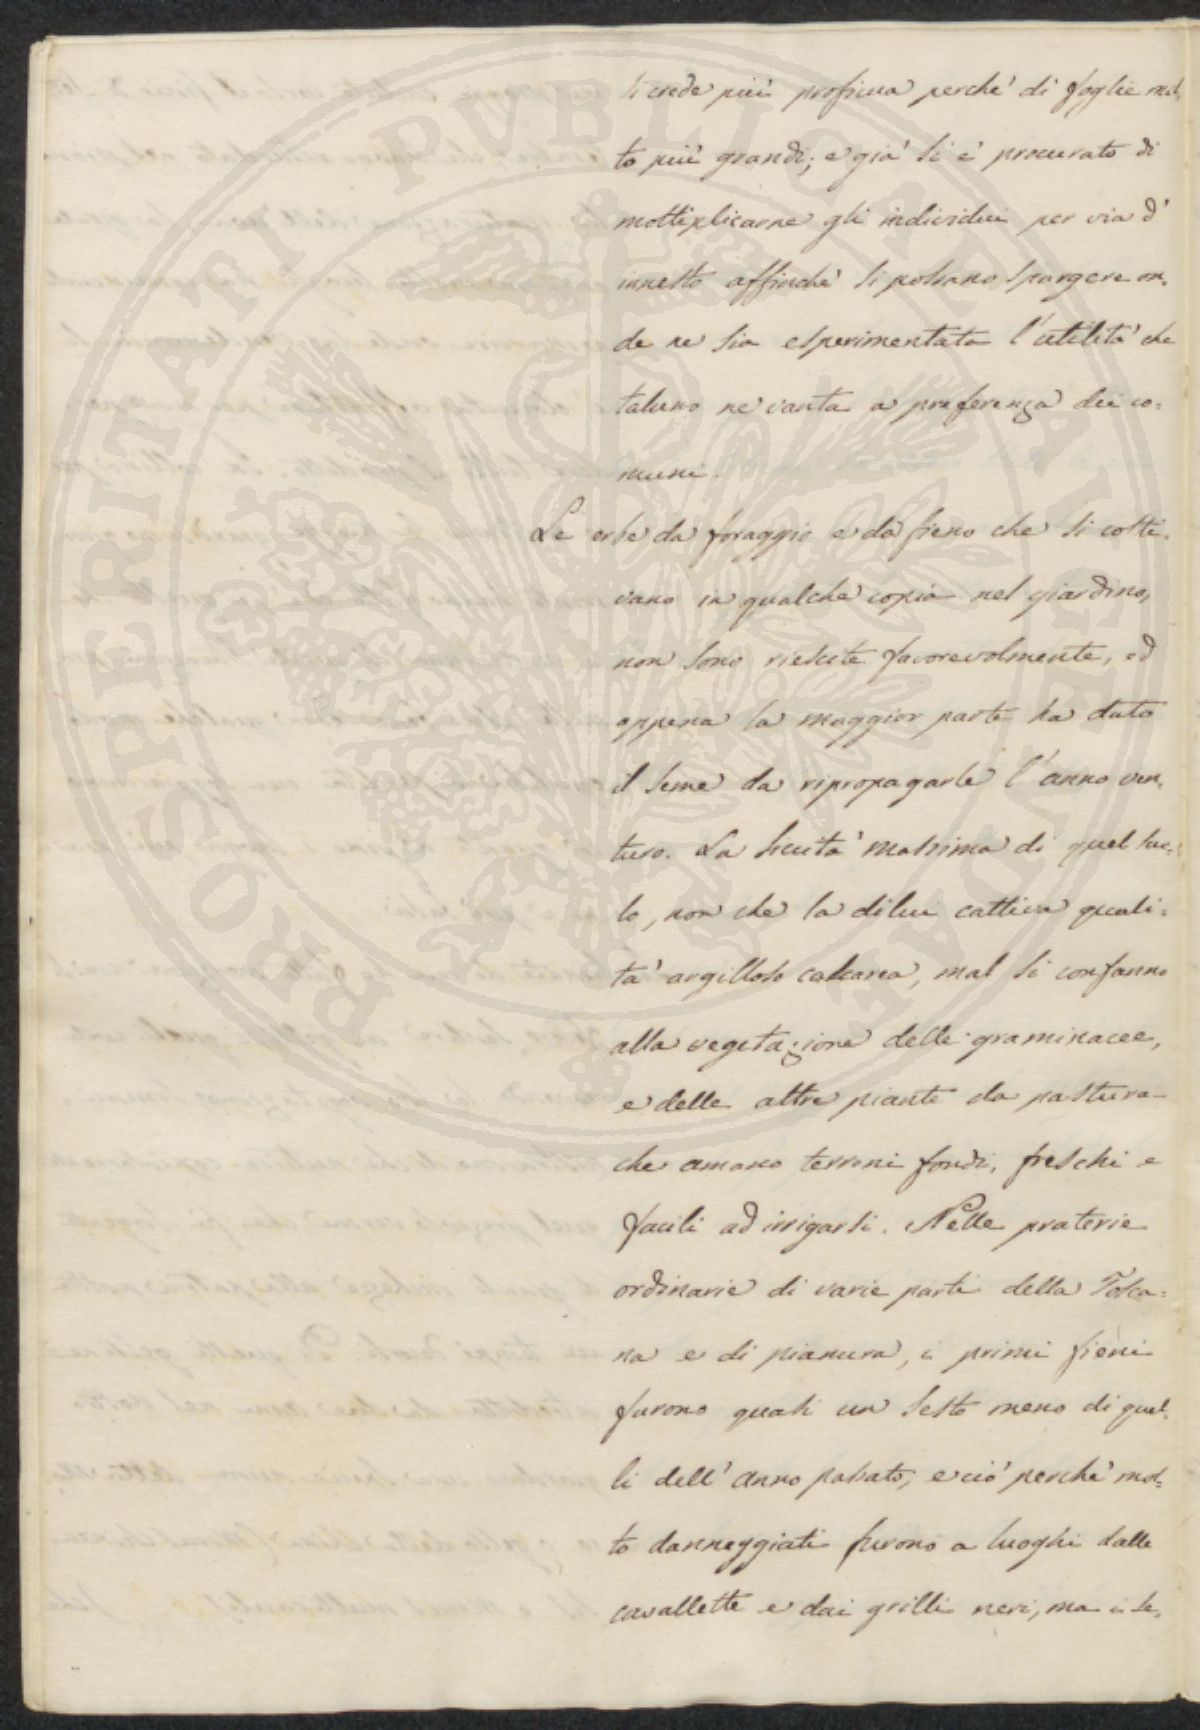 si crede più proficua perchè di foglie mol-
to più grandi; e già si è procurato di
moltiplicarne gli individui per via d'
innesto affinchè si possano spargere on-
de ne sia esperimentata l'utilità che
taluno ne vanta a preferenza dei co=
muni.
Le erbe da foraggio e da fieno che si colti-
vano in qualche copia nel giardino,
non sono riescite favorevolmente, ed
appena la maggior parte ha dato
il seme da ripropagarle l'anno ven-
turo. La siccità massima di quel suo-
lo, non che la dilui cattiva quali=
tà argilloso calcarea, mal si confanno
alla vegetazione delle graminacee,
e delle altre piante da pastura
che amano terreni fondi, freschi e
facili ad irrigarsi. Nelle praterie
ordinarie di varie parti della Tosca=
na e di pianura, i primi fieni
furono quasi un sesto meno di quel-
li dell'anno passato, e ciò perchè mol-
to danneggiati furono a luoghi dalle
cavallette e dai grilli neri, ma i se-
PROSPERITATI PUBLICAE AUGENDAE